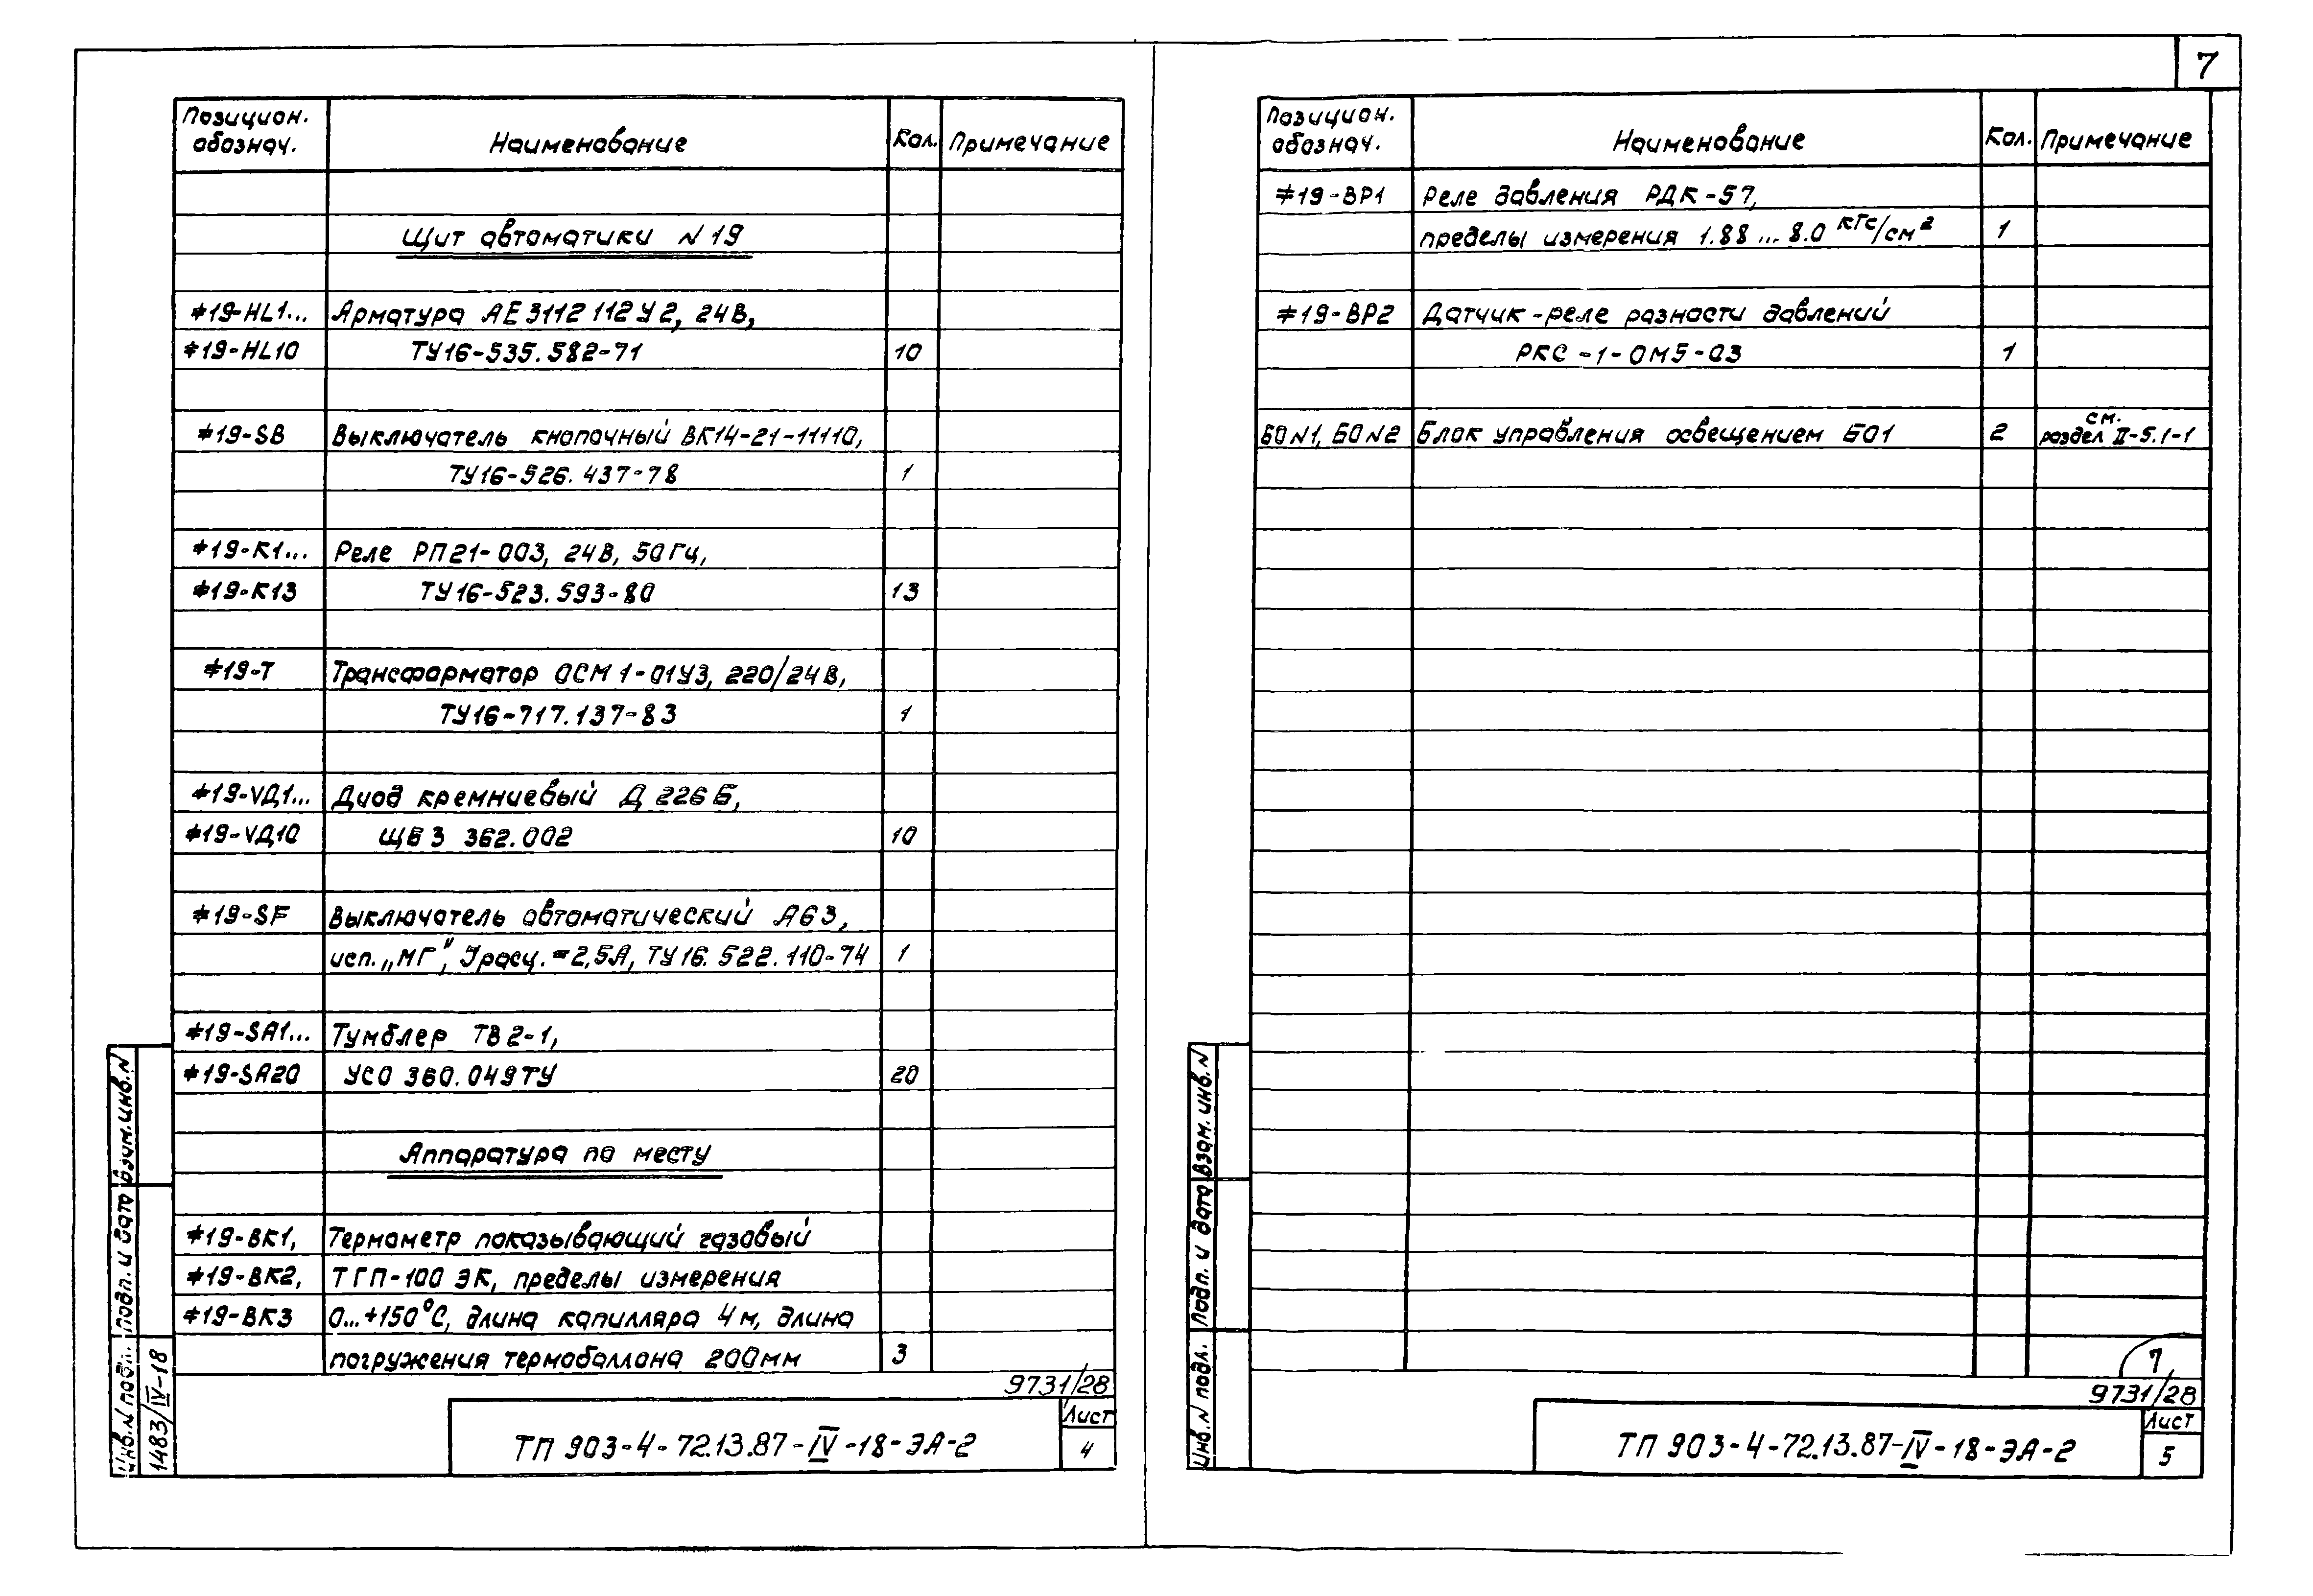 7
Позицион. обознач. Наименование Кол. Примечание
Щит автоматики N19
*19-HL1... Арматура АЕ3112112У2, 24В,
*19-HL10 ТУ16-535.582-71 10
*19-SB Выключатель кнопочный ВК14-21-11110,
ТУ16-526.437-78 1
*19-К1... Реле РП21-003, 24В, 50Гц,
*19-К13 ТУ16-523.593-80 13
*19-Т Трансформатор ОСМ1-01У3, 220/24В,
ТУ16-717.137-83 1
*19-VД1... Диод кремниевый Д226Б,
*19-VД10 ЩБ3 362.002 10
*19-SF Выключатель автоматический А63,
исп. „МГ", Iрасц.=2,5А, ТУ16.522.110-74 1
*19-SA1... Тумблер ТВ2-1,
*19-SA20 УСО 360.049ТУ 20
Аппаратура по месту
*19-ВК1, Термометр показывающий газовый
*19-ВК2, ТГП-100 ЭК, пределы измерения
*19-ВК3 0...+150°С, длина капилляра 4м, длина
погружения термобаллона 200мм 3
9731/28
ТП 903-4-72.13.87-IV-18-ЭА-2
Лист
4
Взам.инв.N
Подп. и дата
Инв.N подл.
1483/IV-18
Позицион. обознач. Наименование Кол. Примечание
*19-ВР1 Реле давления РДК-57,
пределы измерения 1.88...8.0 кГс/см² 1
*19-ВР2 Датчик-реле разности давлений
РКС-1-ОМ5-03 1
БОN1, БОN2 Блок управления освещением БО1 2 см. раздел II-5.1-1
7
9731/28
ТП 903-4-72.13.87-IV-18-ЭА-2
Лист
5
Взам. инв.N
Подп. и дата
Инв.N подл.